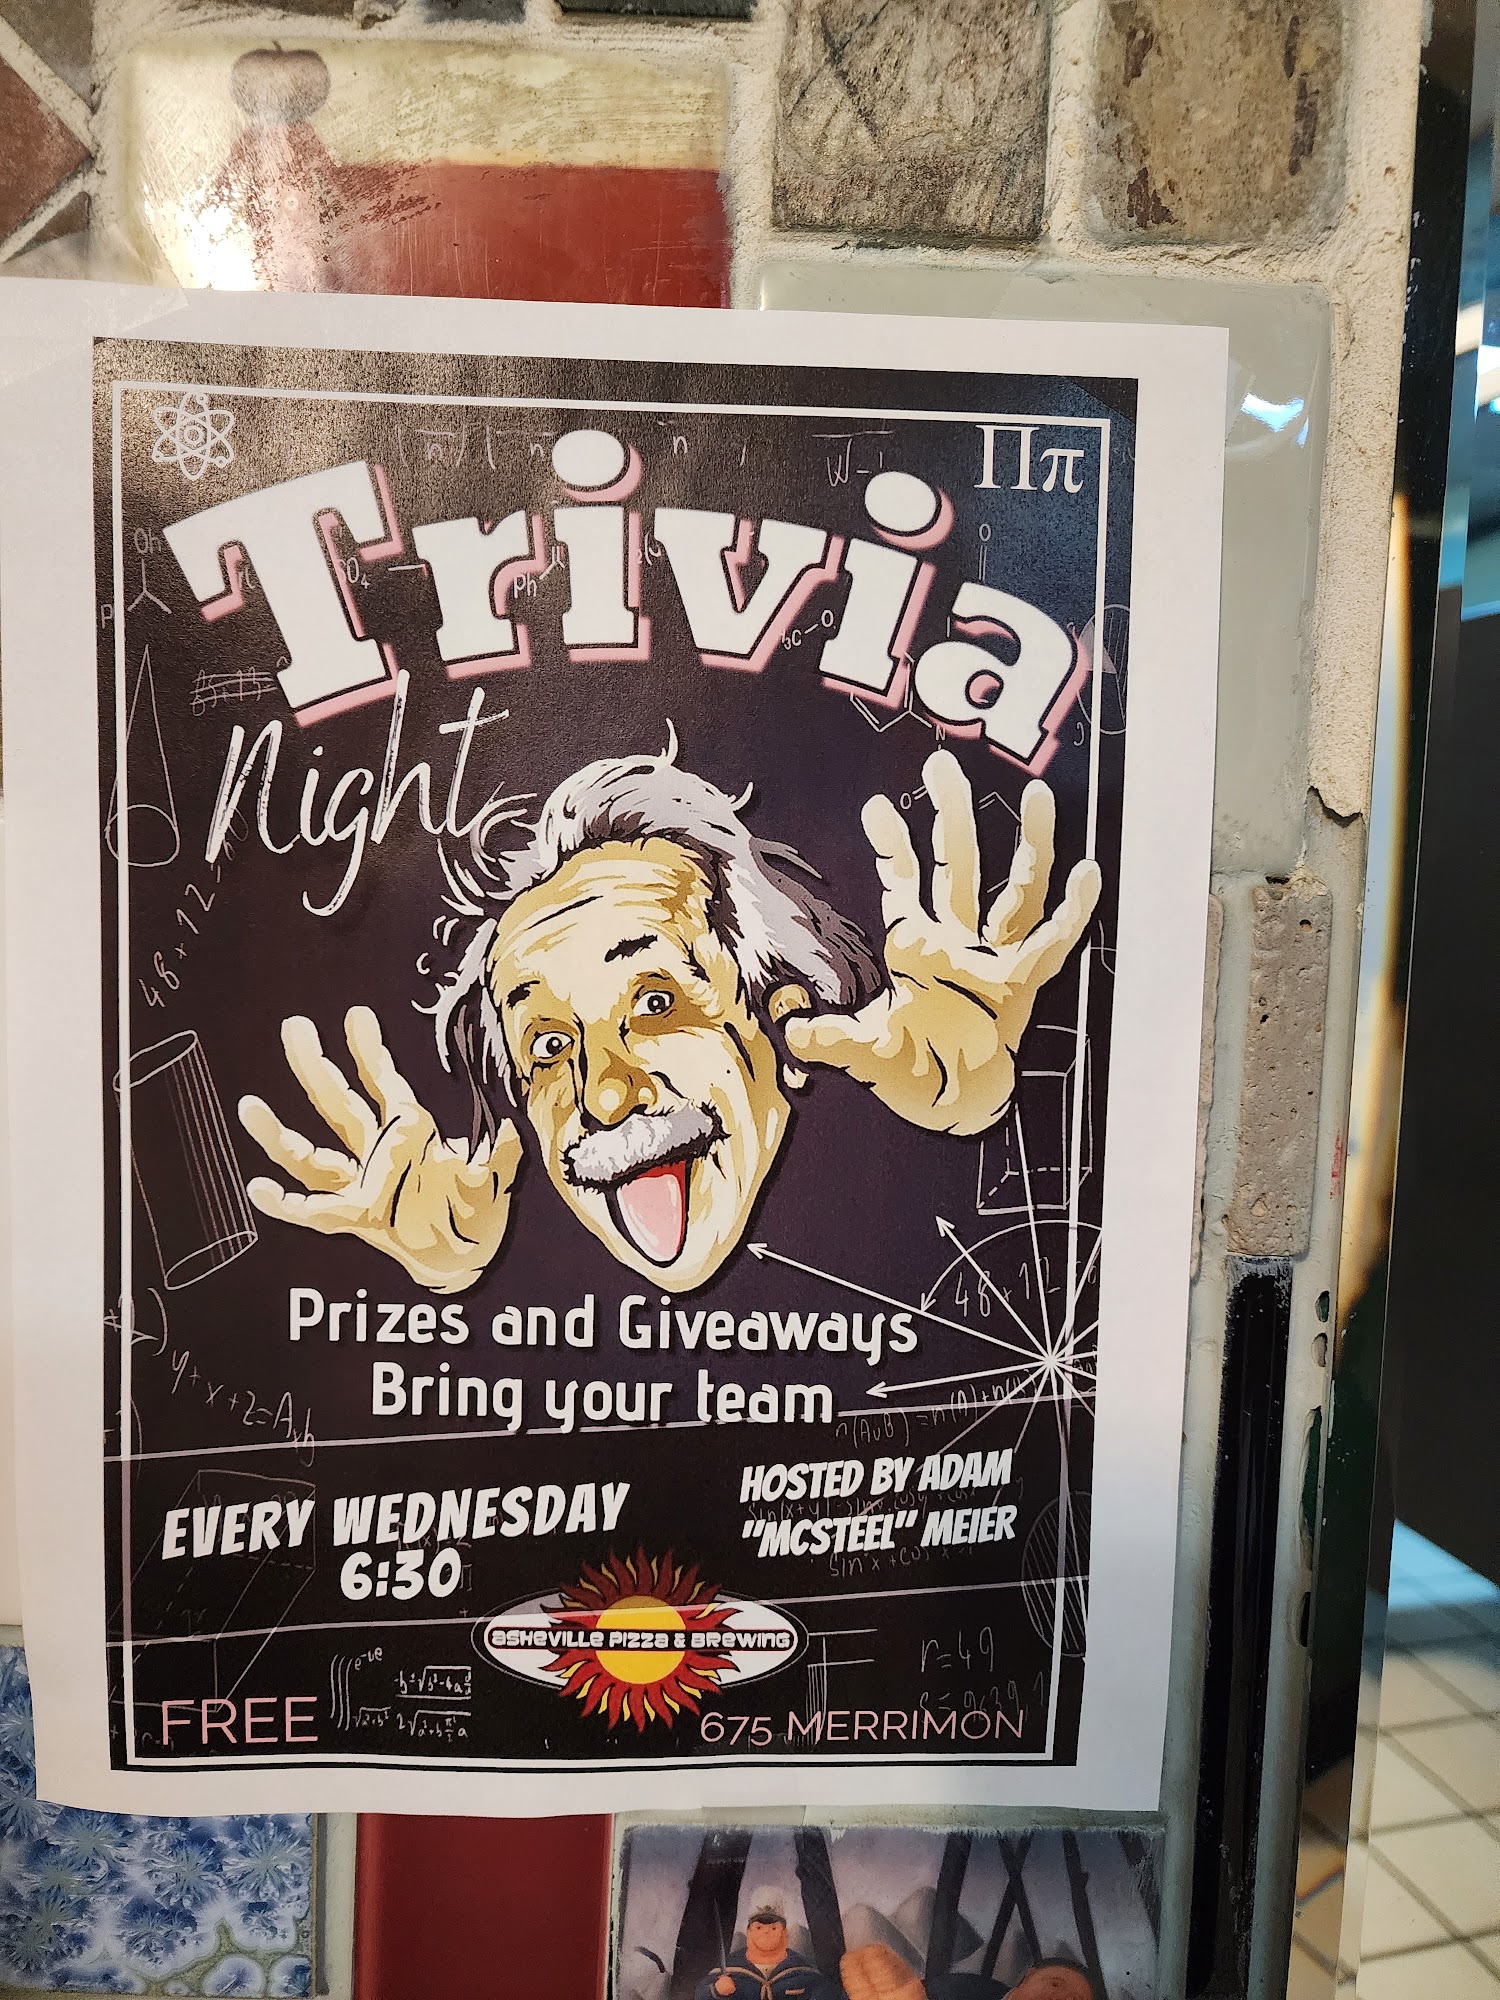 Ππ
Trivia
Night
48+12=
Prizes and Giveaways
Bring your team
y+x+z=A
n(AuB)=n(A)+n(
EVERY WEDNESDAY
6:30
HOSTED BY ADAM
"MCSTEEL" MEIER
asheville pizza & Brewing
r=49
FREE
675 MERRIMON